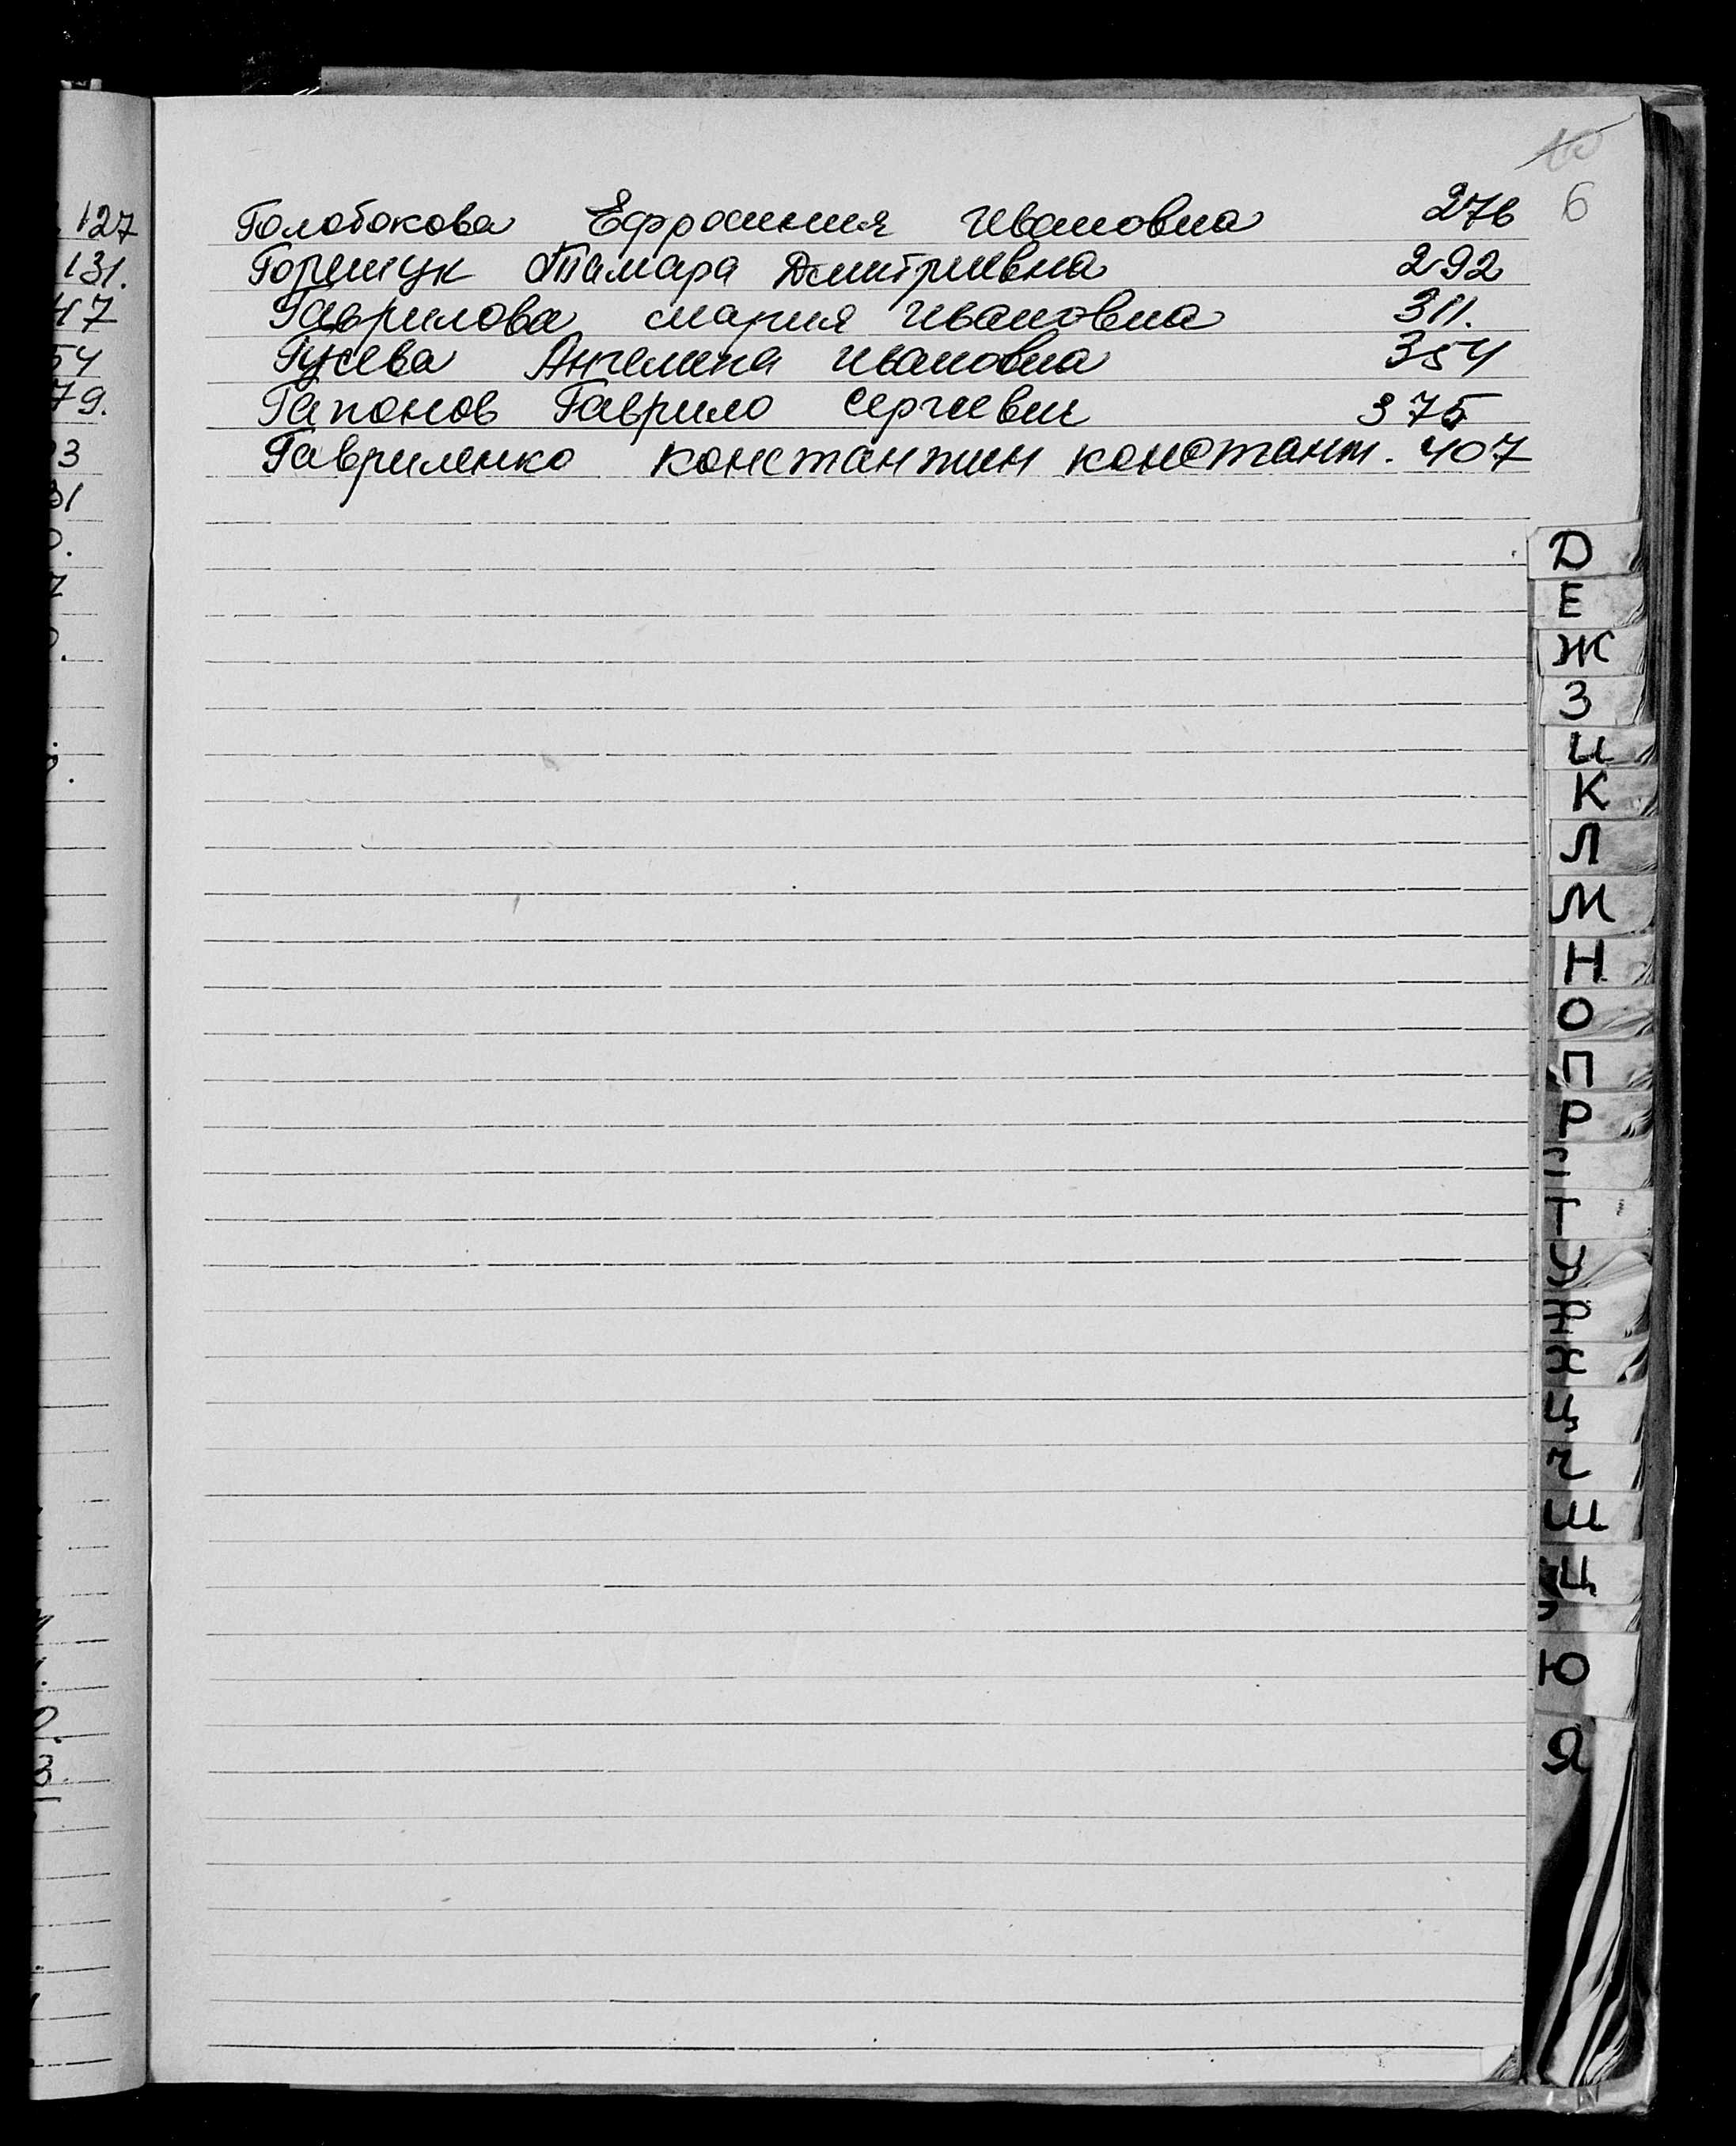 127
131.
47
54
79.
6
Голобокова Ефросиния Ивановна 276
Горещук Тамара Дмитриевна 292
Гаврилова Мария Ивановна 311.
Гусева Ангелина Ивановна 354
Гапонов Гаврило Сергеевич 375
Гавриленко Константин Констант. 407
Д
Е
Ж
З
И
К
Л
М
Н
О
П
Р
Т
У
Ф
Х
Ц
Ч
Ш
Щ
Ю
Я